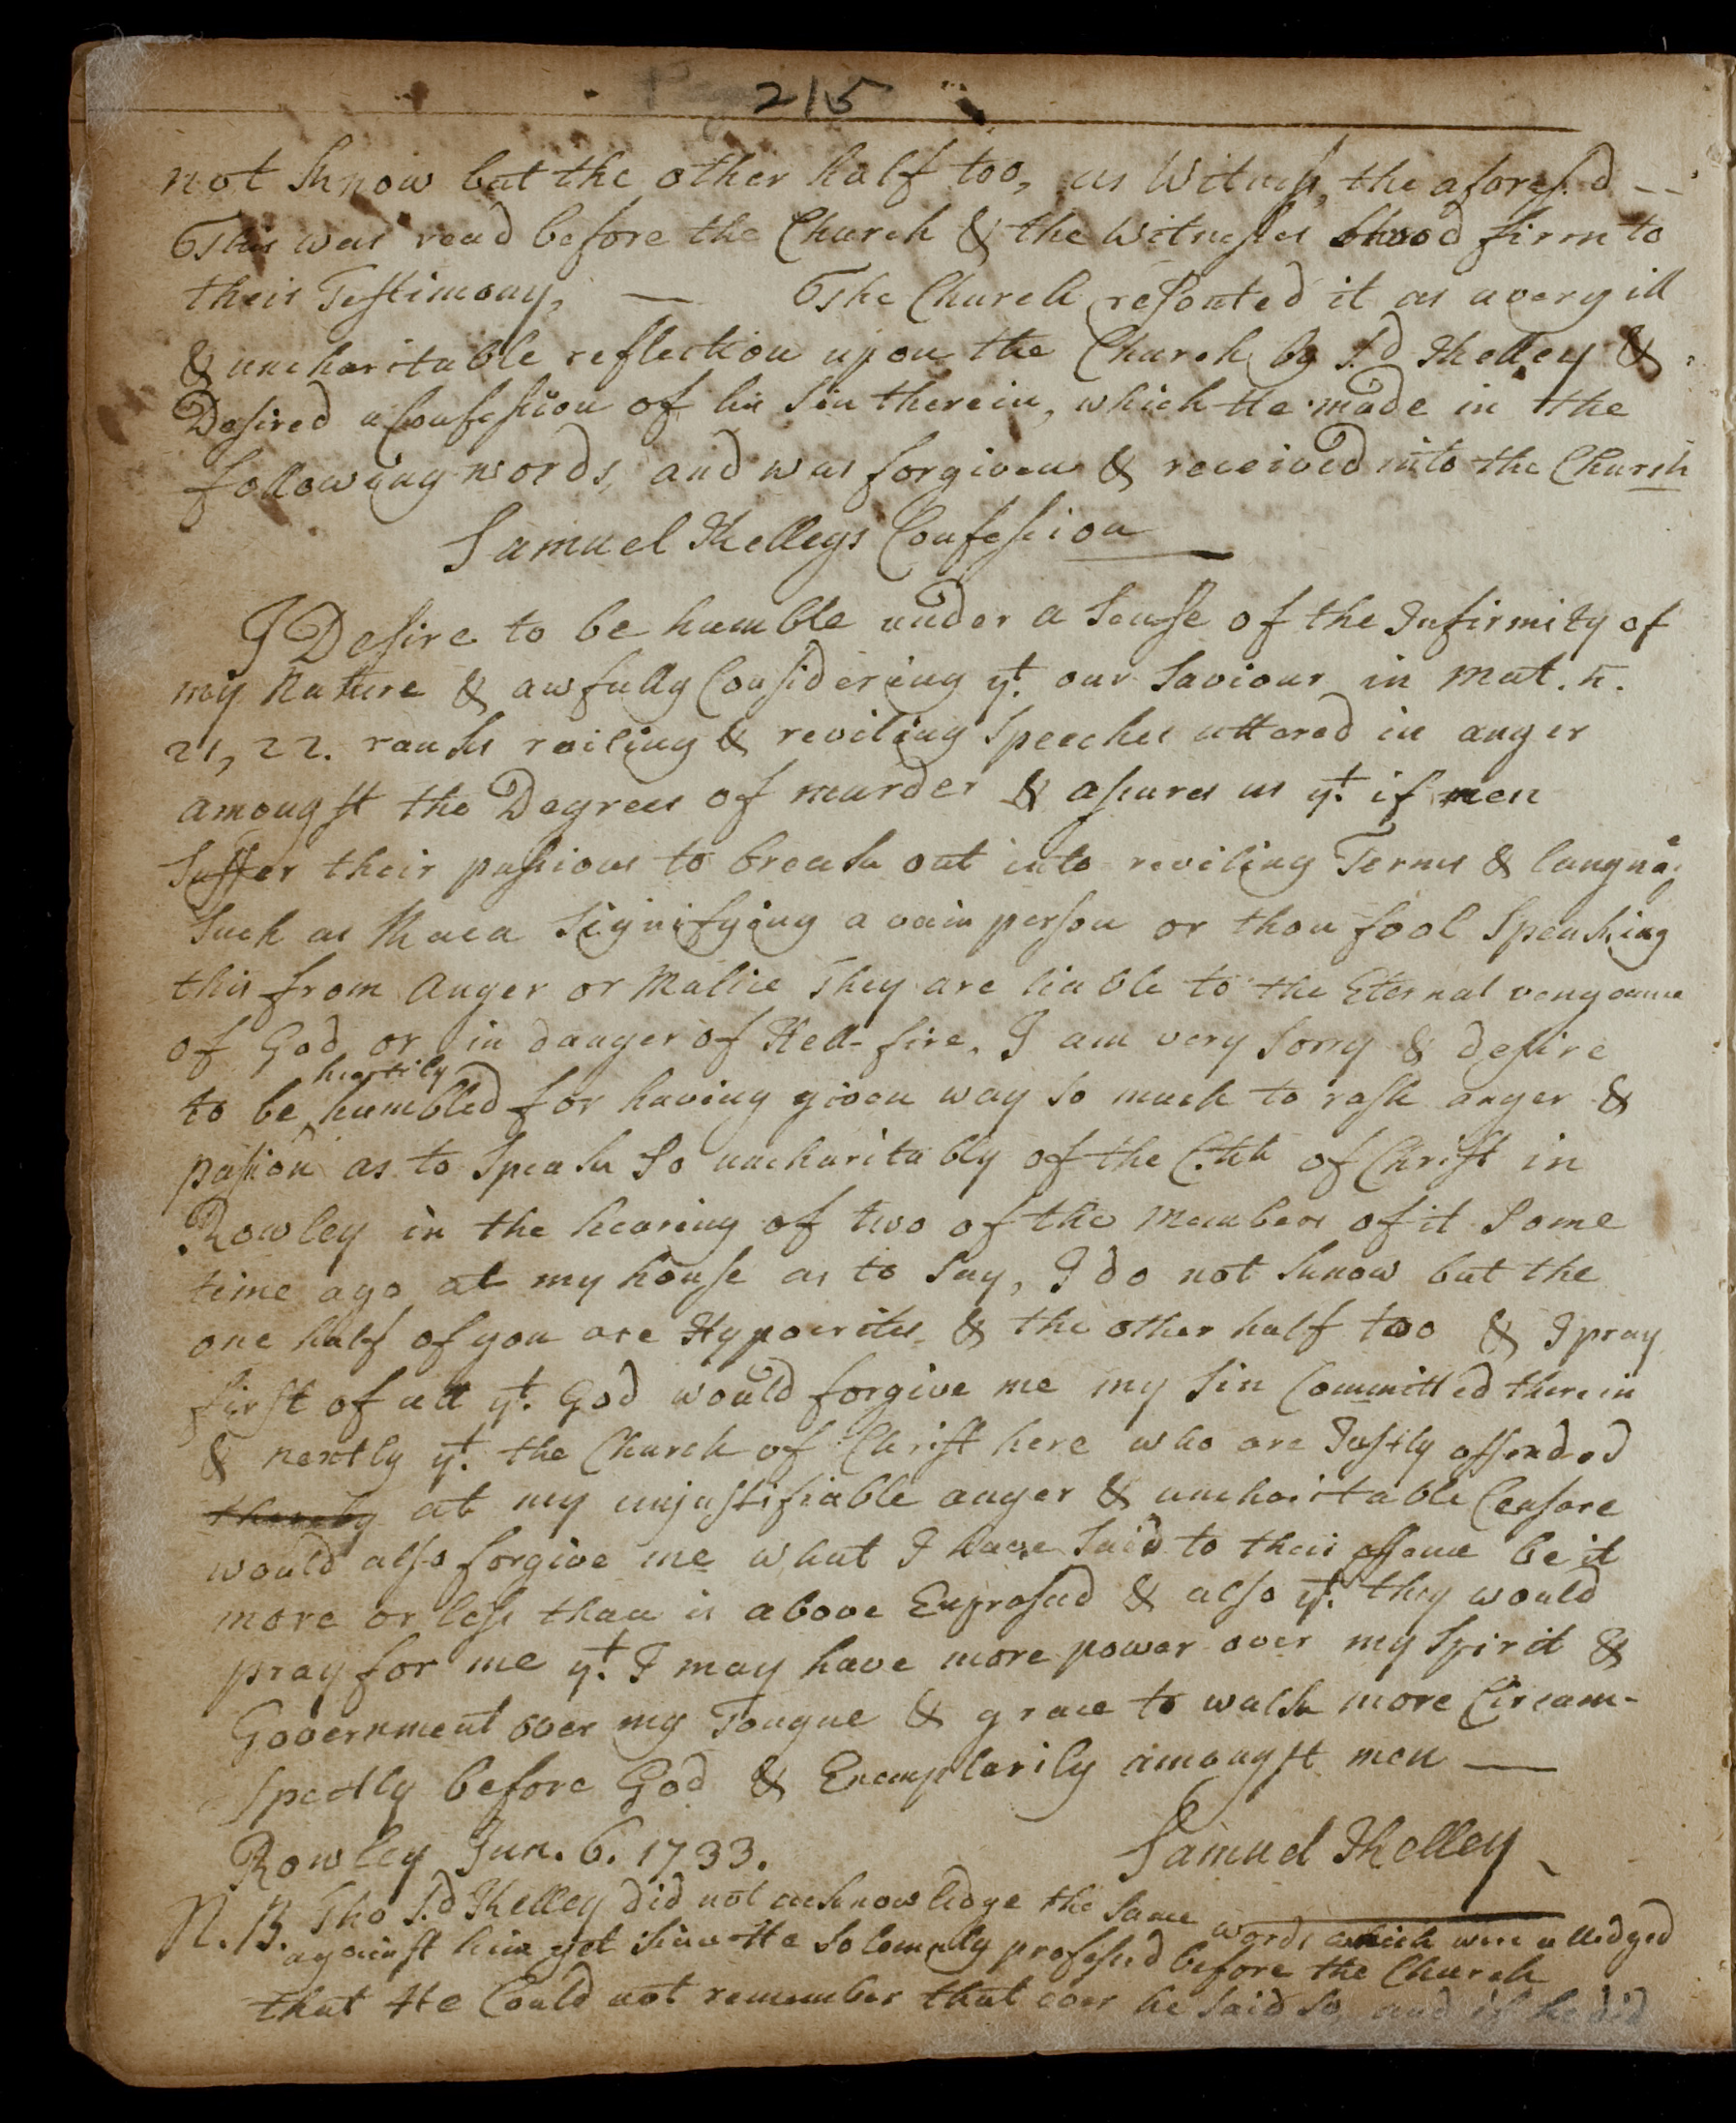 215
not know but the other half too, as Witness, the aforesd. —
This was read before the Church & the Witnesses stood firm to
their Testimony, — The Church resented it as a very ill
& uncharitable reflection upon the Church by sd. Kelley &
Desired a Confession of his sin therein, which He made in the
following words, and was forgiven & received into the Church
Samuel Kelleys Confession
I Desire to be humble under a sense of the Infirmity of
my Nature & awfully Considering yt. our Saviour in Mat. 5.
21, 22. ranks railing & reviling Speeches uttered in anger
amongst the Degrees of murder & assures us yt. if men
Suffer their passions to break out into reviling Terms & languae.
Such as Raca signifying a vain person or thou fool Speaking
this from Anger or Malice They are liable to the Eternal vengeance
of God or in danger of Hell-fire. I am very sorry & desire
to be heartily humbled for having given way so much to rash anger &
passion as to Speak so uncharitably of the Chh of Christ in
Rowley in the hearing of two of the Members of it some
time ago at my house as to say, I do not know but the
one half of you are Hypocrites & the other half too & I pray
first of all yt. God would forgive me my sin Committed therein
& nextly yt. the Church of Christ here who are Justly offended
thereby at my unjustifiable anger & uncharitable Censore
would also forgive me what I have said to their offence be it
more or less than is above Expressed & also yt. they would
pray for me yt. I may have more power over my Spirit &
Government over my Tongue & grace to walk more Circum-
spectly before God & Exemplarily amongst men —
Rowley Jun. 6. 1733. Samuel Kelley
N.B. Tho sd. Kelley did not acknowledge the same words which were alledged
against him yet since He solemnly professed before the Church
that He Could not remember that ever he said so, and if he did